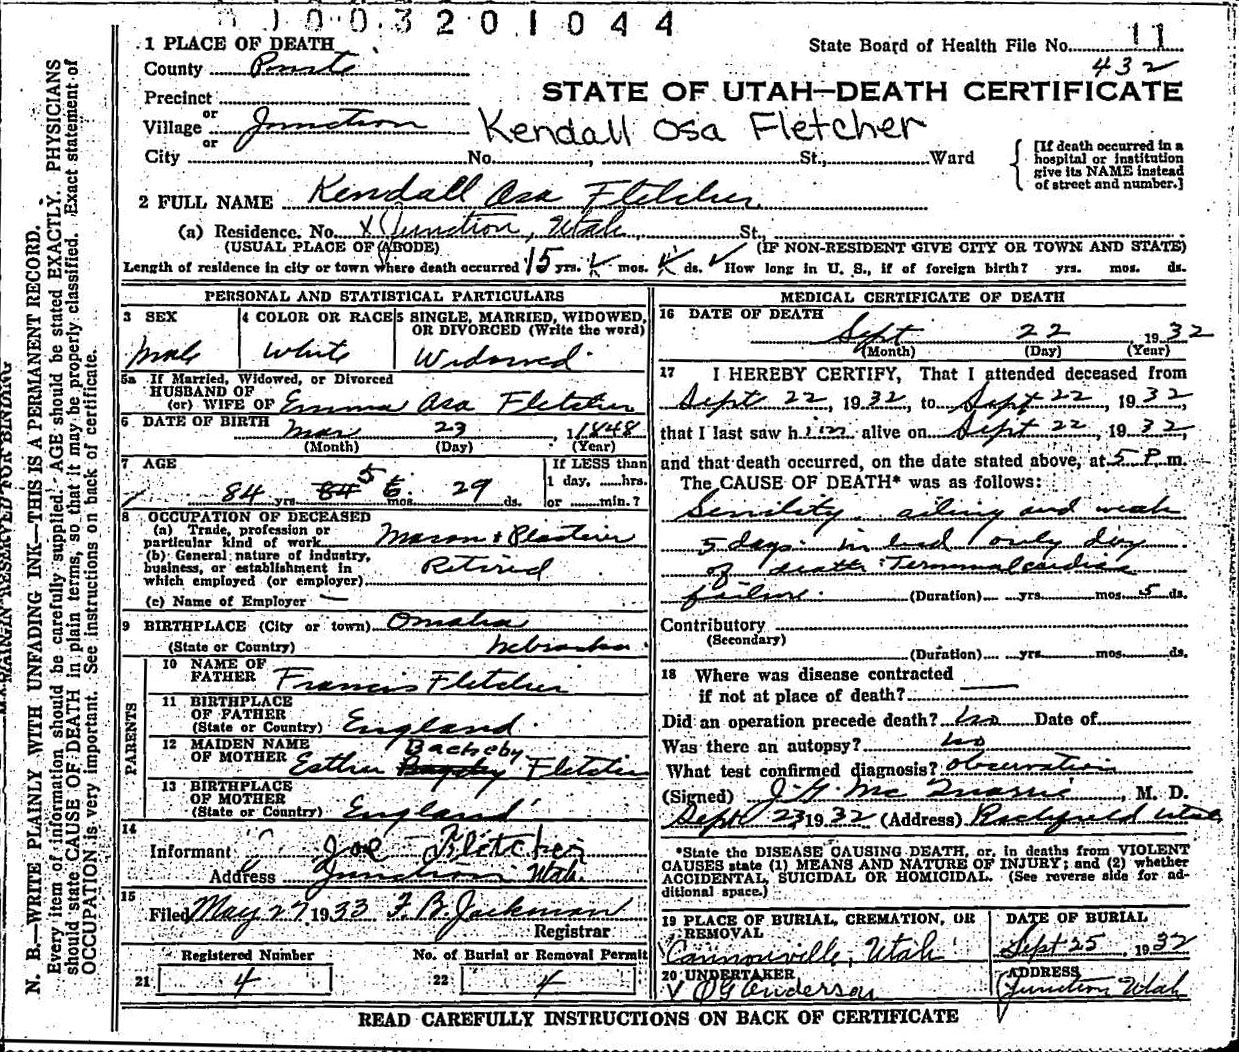 01003201044
1 PLACE OF DEATH
State Board of Health File No. 11
County Piute
432
STATE OF UTAH—DEATH CERTIFICATE
Precinct
or
Village Junction
Kendall Osa Fletcher
or
City No. , St., Ward
[If death occurred in a
hospital or institution
give its NAME instead
of street and number.]
2 FULL NAME Kendall Asa Fletcher
(a) Residence. No. Junction, Utah, St.,
(USUAL PLACE OF ABODE) (IF NON-RESIDENT GIVE CITY OR TOWN AND STATE)
Length of residence in city or town where death occurred 15 yrs. mos. ds. How long in U. S., if of foreign birth? yrs. mos. ds.
PERSONAL AND STATISTICAL PARTICULARS
3 SEX
Male
4 COLOR OR RACE
White
5 SINGLE, MARRIED, WIDOWED,
OR DIVORCED (Write the word)
Widowed
5a If Married, Widowed, or Divorced
HUSBAND OF
(or) WIFE OF Emma Asa Fletcher
6 DATE OF BIRTH Mar 23, 1848
(Month) (Day) (Year)
7 AGE
If LESS than
1 day, hrs.
or min.?
5
84 yrs. 84 mos. 6 29 ds.
8 OCCUPATION OF DECEASED
(a) Trade, profession or
particular kind of work Mason & Plasterer
(b) General nature of industry,
business, or establishment in
which employed (or employer) Retired
(c) Name of Employer —
9 BIRTHPLACE (City or town) Omaha
(State or Country) Nebraska
PARENTS
10 NAME OF
FATHER Francis Fletcher
11 BIRTHPLACE
OF FATHER
(State or Country) England
12 MAIDEN NAME
OF MOTHER Esther Fletcher
13 BIRTHPLACE
OF MOTHER
(State or Country) England
14
Informant Joe Fletcher
Address Junction Utah.
15
Filed May 27 1933 F. B. Jackman
Registrar
Registered Number
21 4
No. of Burial or Removal Permit
22 4
MEDICAL CERTIFICATE OF DEATH
16 DATE OF DEATH
Sept 22 1932
(Month) (Day) (Year)
17 I HEREBY CERTIFY, That I attended deceased from
Sept 22, 1932, to Sept 22, 1932,
that I last saw him alive on Sept 22, 1932,
and that death occurred, on the date stated above, at 5 P. m.
The CAUSE OF DEATH* was as follows:
Senility ailing and weak
5 days in bed only day
of death. Terminal cardiac
failure. (Duration) yrs. mos. 5 ds.
Contributory
(Secondary)
(Duration) yrs. mos. ds.
18 Where was disease contracted
if not at place of death?
Did an operation precede death? No Date of
Was there an autopsy? No
What test confirmed diagnosis? Observation
(Signed) J. G. McQuarrie, M. D.
Sept 23 1932 (Address) Richfield Utah
*State the DISEASE CAUSING DEATH, or, in deaths from VIOLENT
CAUSES state (1) MEANS AND NATURE OF INJURY; and (2) whether
ACCIDENTAL, SUICIDAL OR HOMICIDAL. (See reverse side for ad-
ditional space.)
19 PLACE OF BURIAL, CREMATION, OR
REMOVAL
Cannonville, Utah
DATE OF BURIAL
Sept 25, 1932
20 UNDERTAKER
Anderson
ADDRESS
Junction Utah
READ CAREFULLY INSTRUCTIONS ON BACK OF CERTIFICATE
MARGIN RESERVED FOR BINDING
N. B.—WRITE PLAINLY WITH UNFADING INK—THIS IS A PERMANENT RECORD.
Every item of information should be carefully supplied. AGE should be stated EXACTLY. PHYSICIANS
should state CAUSE OF DEATH in plain terms, so that it may be properly classified. Exact statement of
OCCUPATION is very important. See instructions on back of certificate.